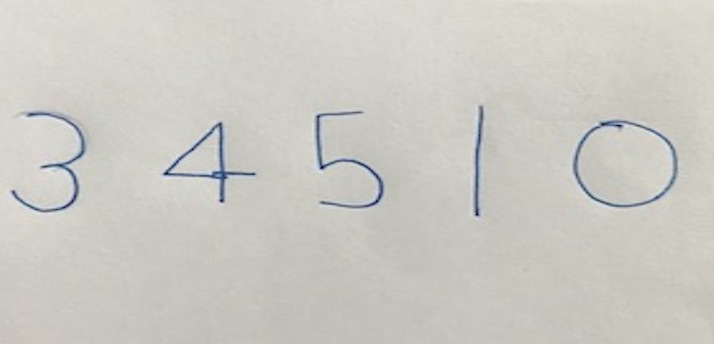 3 4 5 1 0